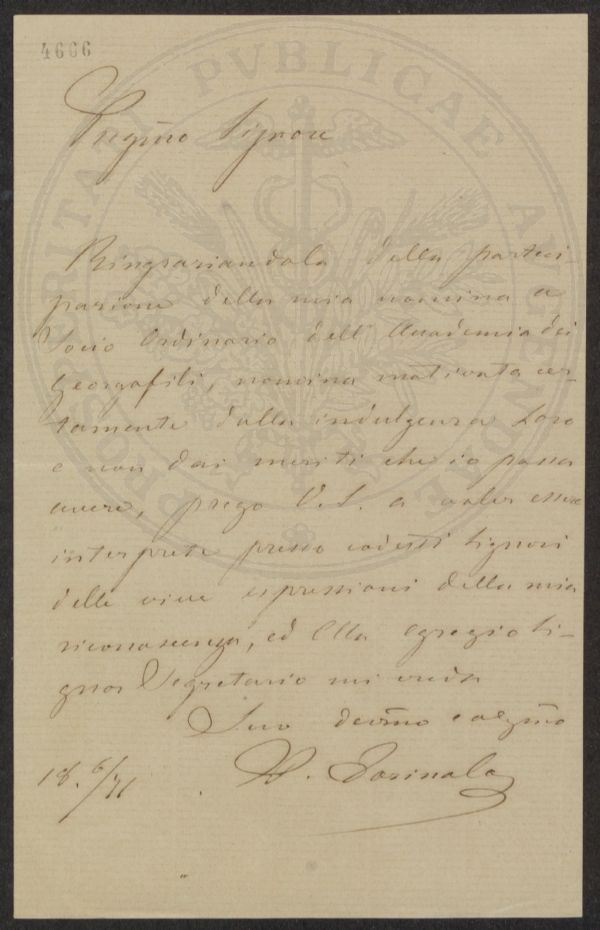 4606
PROSPERITATI PVBLICAE AVGENDAE
Pregmo Signore
Ringraziandola della parteci-
pazione della mia nomina a
Socio Ordinario dell' Accademia dei
Georgofili, nomina motivata cer-
tamente dalla indulgenza Loro
e non dai meriti che io possa
avere, prego V.S. a voler essere
interprete presso codesti Signori
delle vive espressioni della mia
riconoscenza, ed Ella Egregio Si-
gnor Segretario mi creda
Suo devmo
18. 6/71